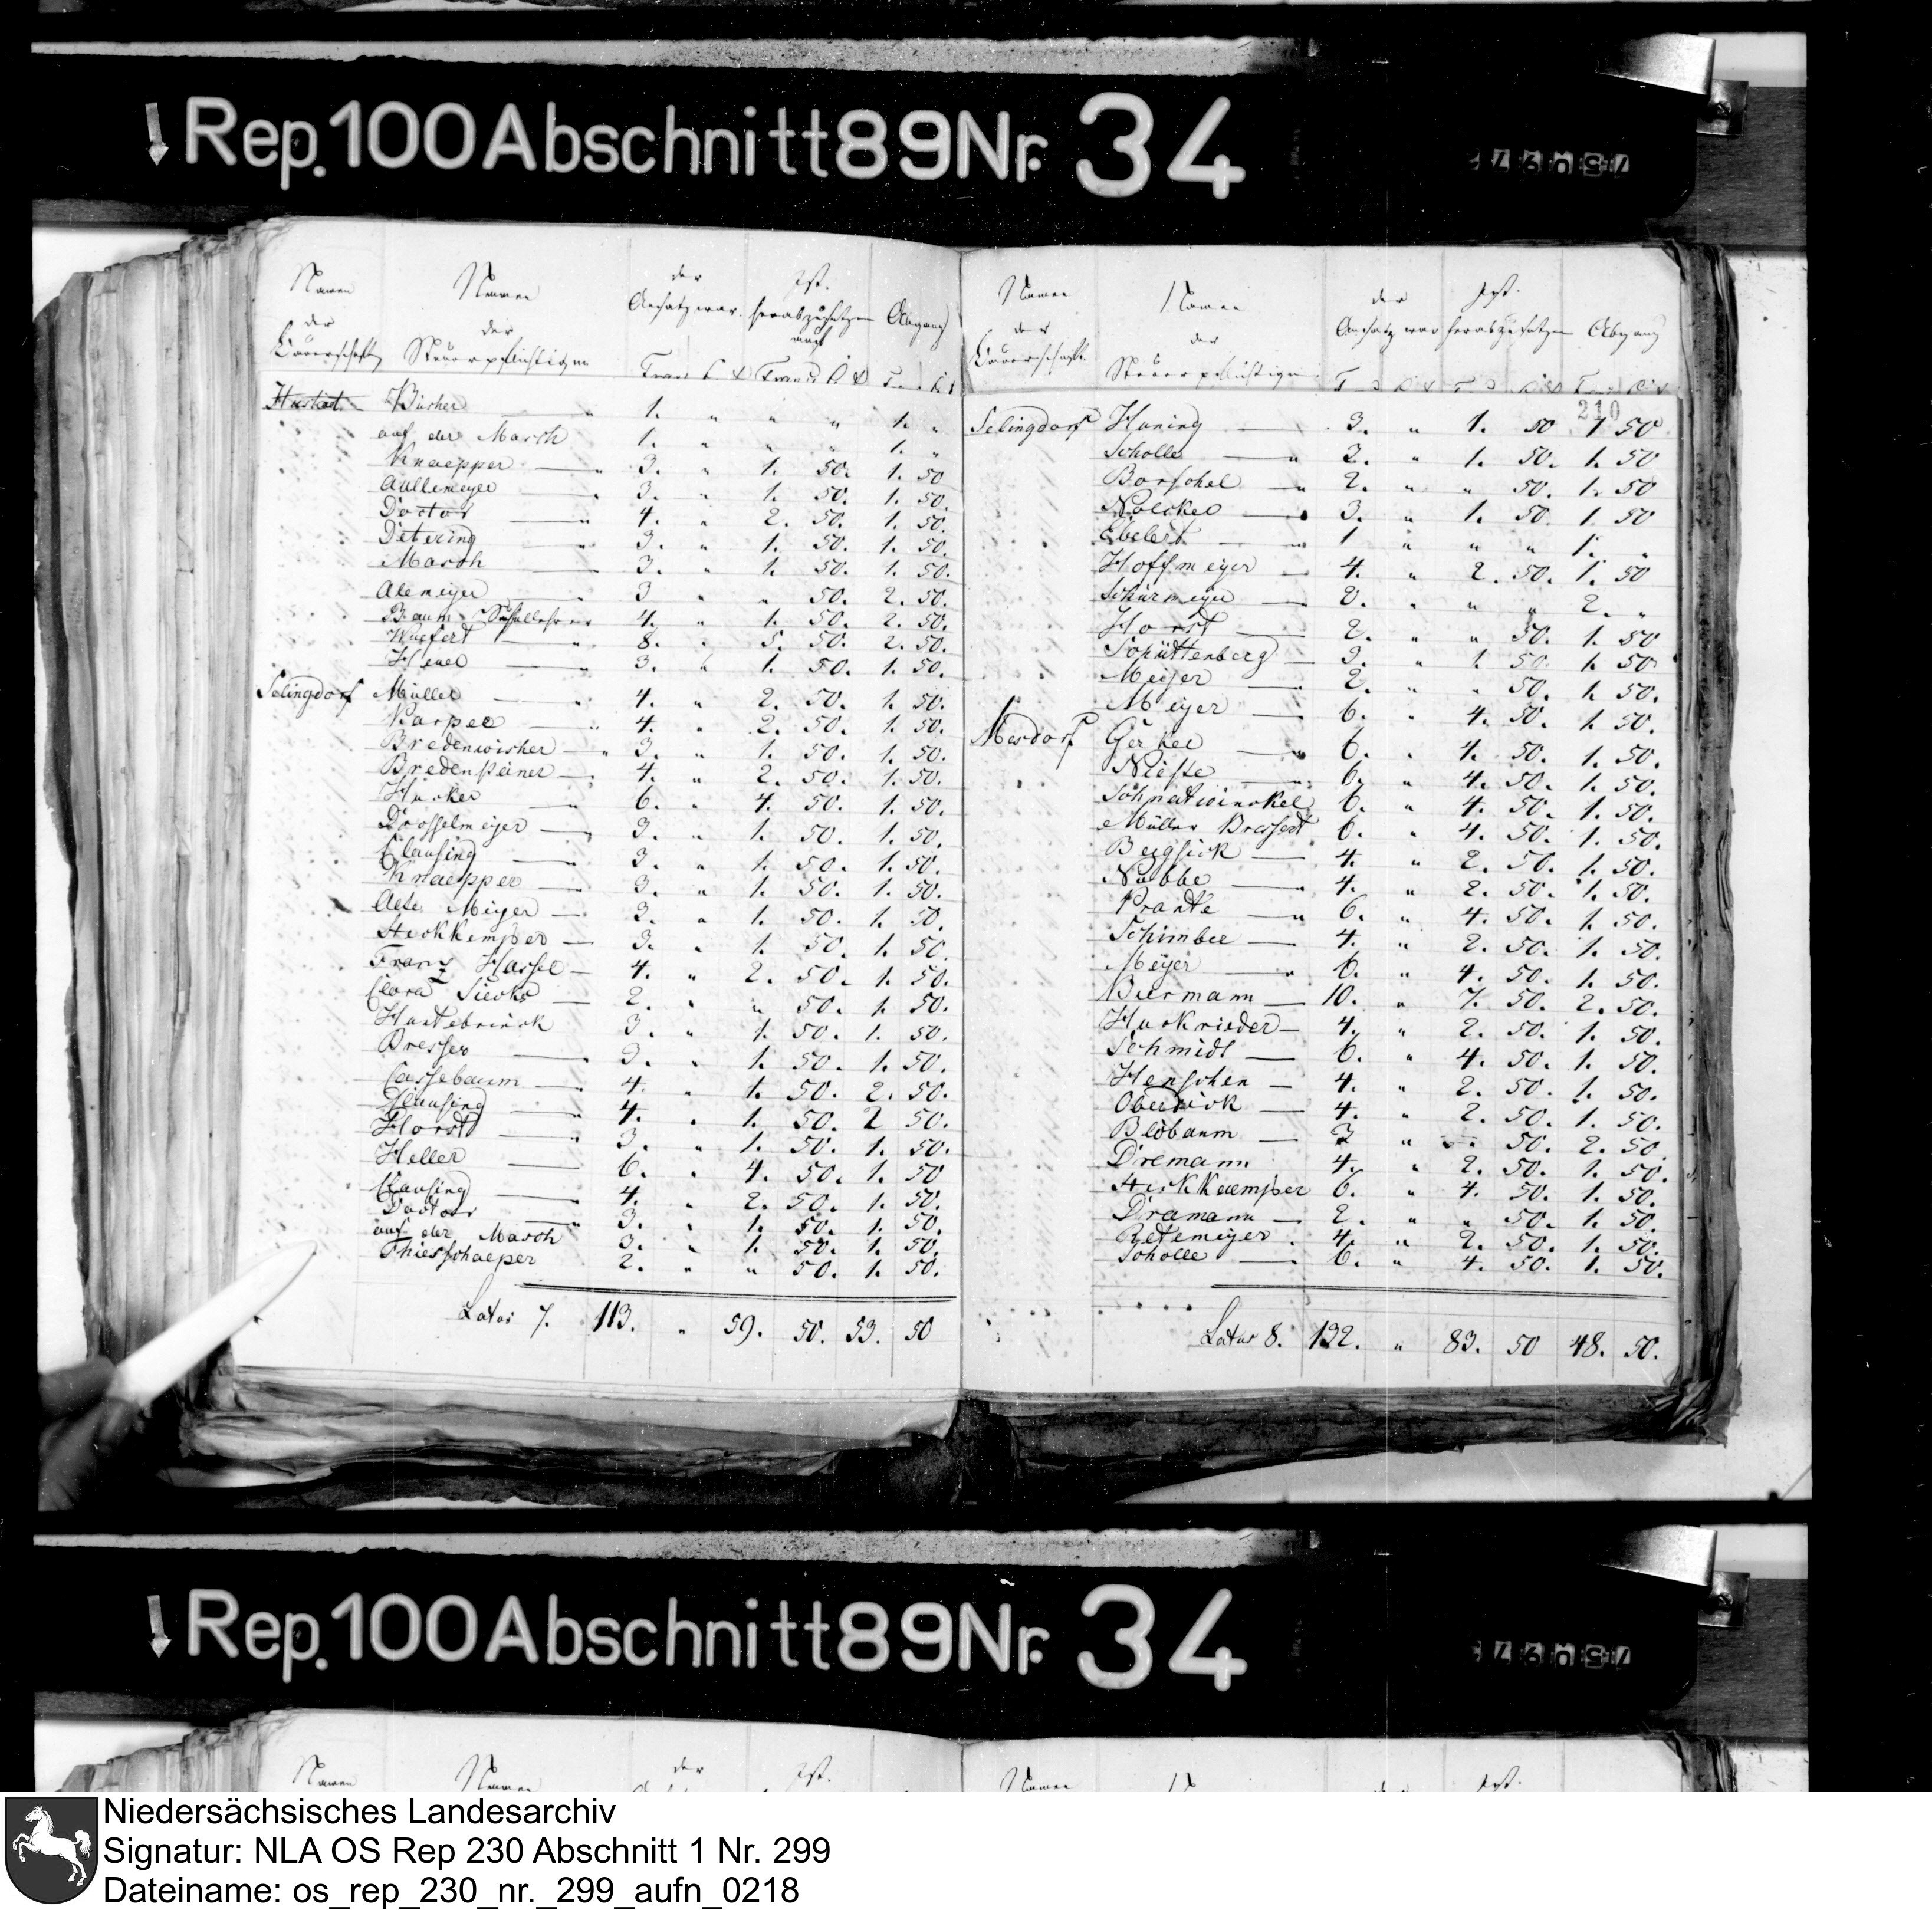 Rep. 100 Abschnitt 89 Nr. 34
Namen Namen der Ist.
Ansatz war. herabzusetzen Abgang
der der auf
Bauerschaft Steuerpflichtigen
Hustädt Büscher — " 1. " " " 1. "
auf der Masch 1. " " " 1. "
Knaepper — " 3. " 1. 50. 1. 50
Aullemeyer — " 3. " 1. 50. 1. 50.
Doctor — " 4. " 2. 50. 1. 50.
Detering — " 3. " 1. 50. 1. 50.
Masch — 3. " 1. 50. 1. 50.
Alemeyer — " 3 " " 50. 2. 50.
Baum Schullehrer 4. " 1. 50. 2. 50.
8. " 5. 50. 2. 50.
— " 3. " 1. 50. 1. 50.
Selingdorf Müller — " 4. " 2. 50. 1. 50.
Karper — " 4. " 2. 50. 1. 50.
Bredenwischer — " 3. " 1. 50. 1. 50.
Bredensteiner — 4. " 2. 50. 1. 50.
Hucker — " 6. " 4. 50. 1. 50.
Drosselmeyer — " 3. " 1. 50. 1. 50.
Clausing — " 3. " 1. 50. 1. 50.
Knaepper — " 3. " 1. 50. 1. 50.
Alte Meyer — 3. " 1. 50. 1. 50.
Stockkemper — 3. " 1. 50. 1. 50.
Franz Hassel — 4. " 2. 50. 1. 50.
Clara — 2. " " 50. 1. 50.
Hartebrinck 3. " 1. 50. 1. 50.
Bresser — " 3. " 1. 50. 1. 50.
Cassebaum — " 4. " 1. 50. 2. 50.
Clausing — " 4. " 1. 50. 2 50.
Horst — " 3. " 1. 50. 1. 50.
Heller — 6. " 4. 50. 1. 50
Clausing — " 4. " 2. 50. 1. 50.
Doctor — " 3. " 1. 50. 1. 50.
auf der Masch 3. " 1. 50. 1. 50.
Thiesschaeper 2. " " 50. 1. 50.
Latus 7. 113. " 59. 50. 53. 50
Namen Namen der Ist.
Ansatz war herabzusetzen Abgang
der der
Bauerschaft Steuerpflichtigen
210
Selingdorf Huning — 3. " 1. 50 1 50
Scholle — " 3. " 1. 50. 1. 50
Borschel — " 2. " " 50. 1. 50
Nölcker — 3. " 1. 50. 1 50
— " 1 " " " 1. "
Hoffmeyer — 4. " 2. 50. 1. 50
Schürmeyer — 2. " " " 2. "
Horst — 2. " " 50. 1. 50
Schüttenberg — 3. " 1 50. 1. 50.
Meyer — 2. " " 50. 1. 50.
Meyer — 6. " 4. 50. 1. 50.
Mesdorf Gerker — " 6. " 4. 50. 1. 50.
— " 6. " 4. 50. 1. 50.
Schnatwinckel 6. " 4. 50. 1. 50.
Müller Bressert 6. " 4. 50. 1. 50.
Bergsick — 4. " 2. 50. 1. 50.
Nubbe — " 4. " 2. 50. 1. 50.
Prante — " 6. " 4. 50. 1. 50.
Schimber — 4. " 2. 50. 1. 50.
Meyer — " 6. " 4. 50. 1. 50.
Buermann — 10. " 7. 50. 2. 50.
Huckrieder — 4. " 2. 50. 1. 50.
Schmidt — 6. " 4. 50. 1. 50.
Henschen — 4. " 2. 50. 1. 50.
— 4. " 2. 50. 1. 50.
Blöbaum — 3 " " 50. 2. 50.
Dremann 4. " 2. 50. 1. 50.
Stockkaemper 6. " 4. 50. 1. 50.
Dramann — 2. " " 50. 1. 50.
Retemeyer. 4. " 2. 50. 1. 50.
Scholle — 6. " 4. 50. 1. 50.
Latus 8. 132. " 83. 50 48. 50.
Rep. 100 Abschnitt 89 Nr. 34
Namen Namen der Ist. Namen der Ist.
Niedersächsisches Landesarchiv
Signatur: NLA OS Rep 230 Abschnitt 1 Nr. 299
Dateiname: os_rep_230_nr._299_aufn_0218